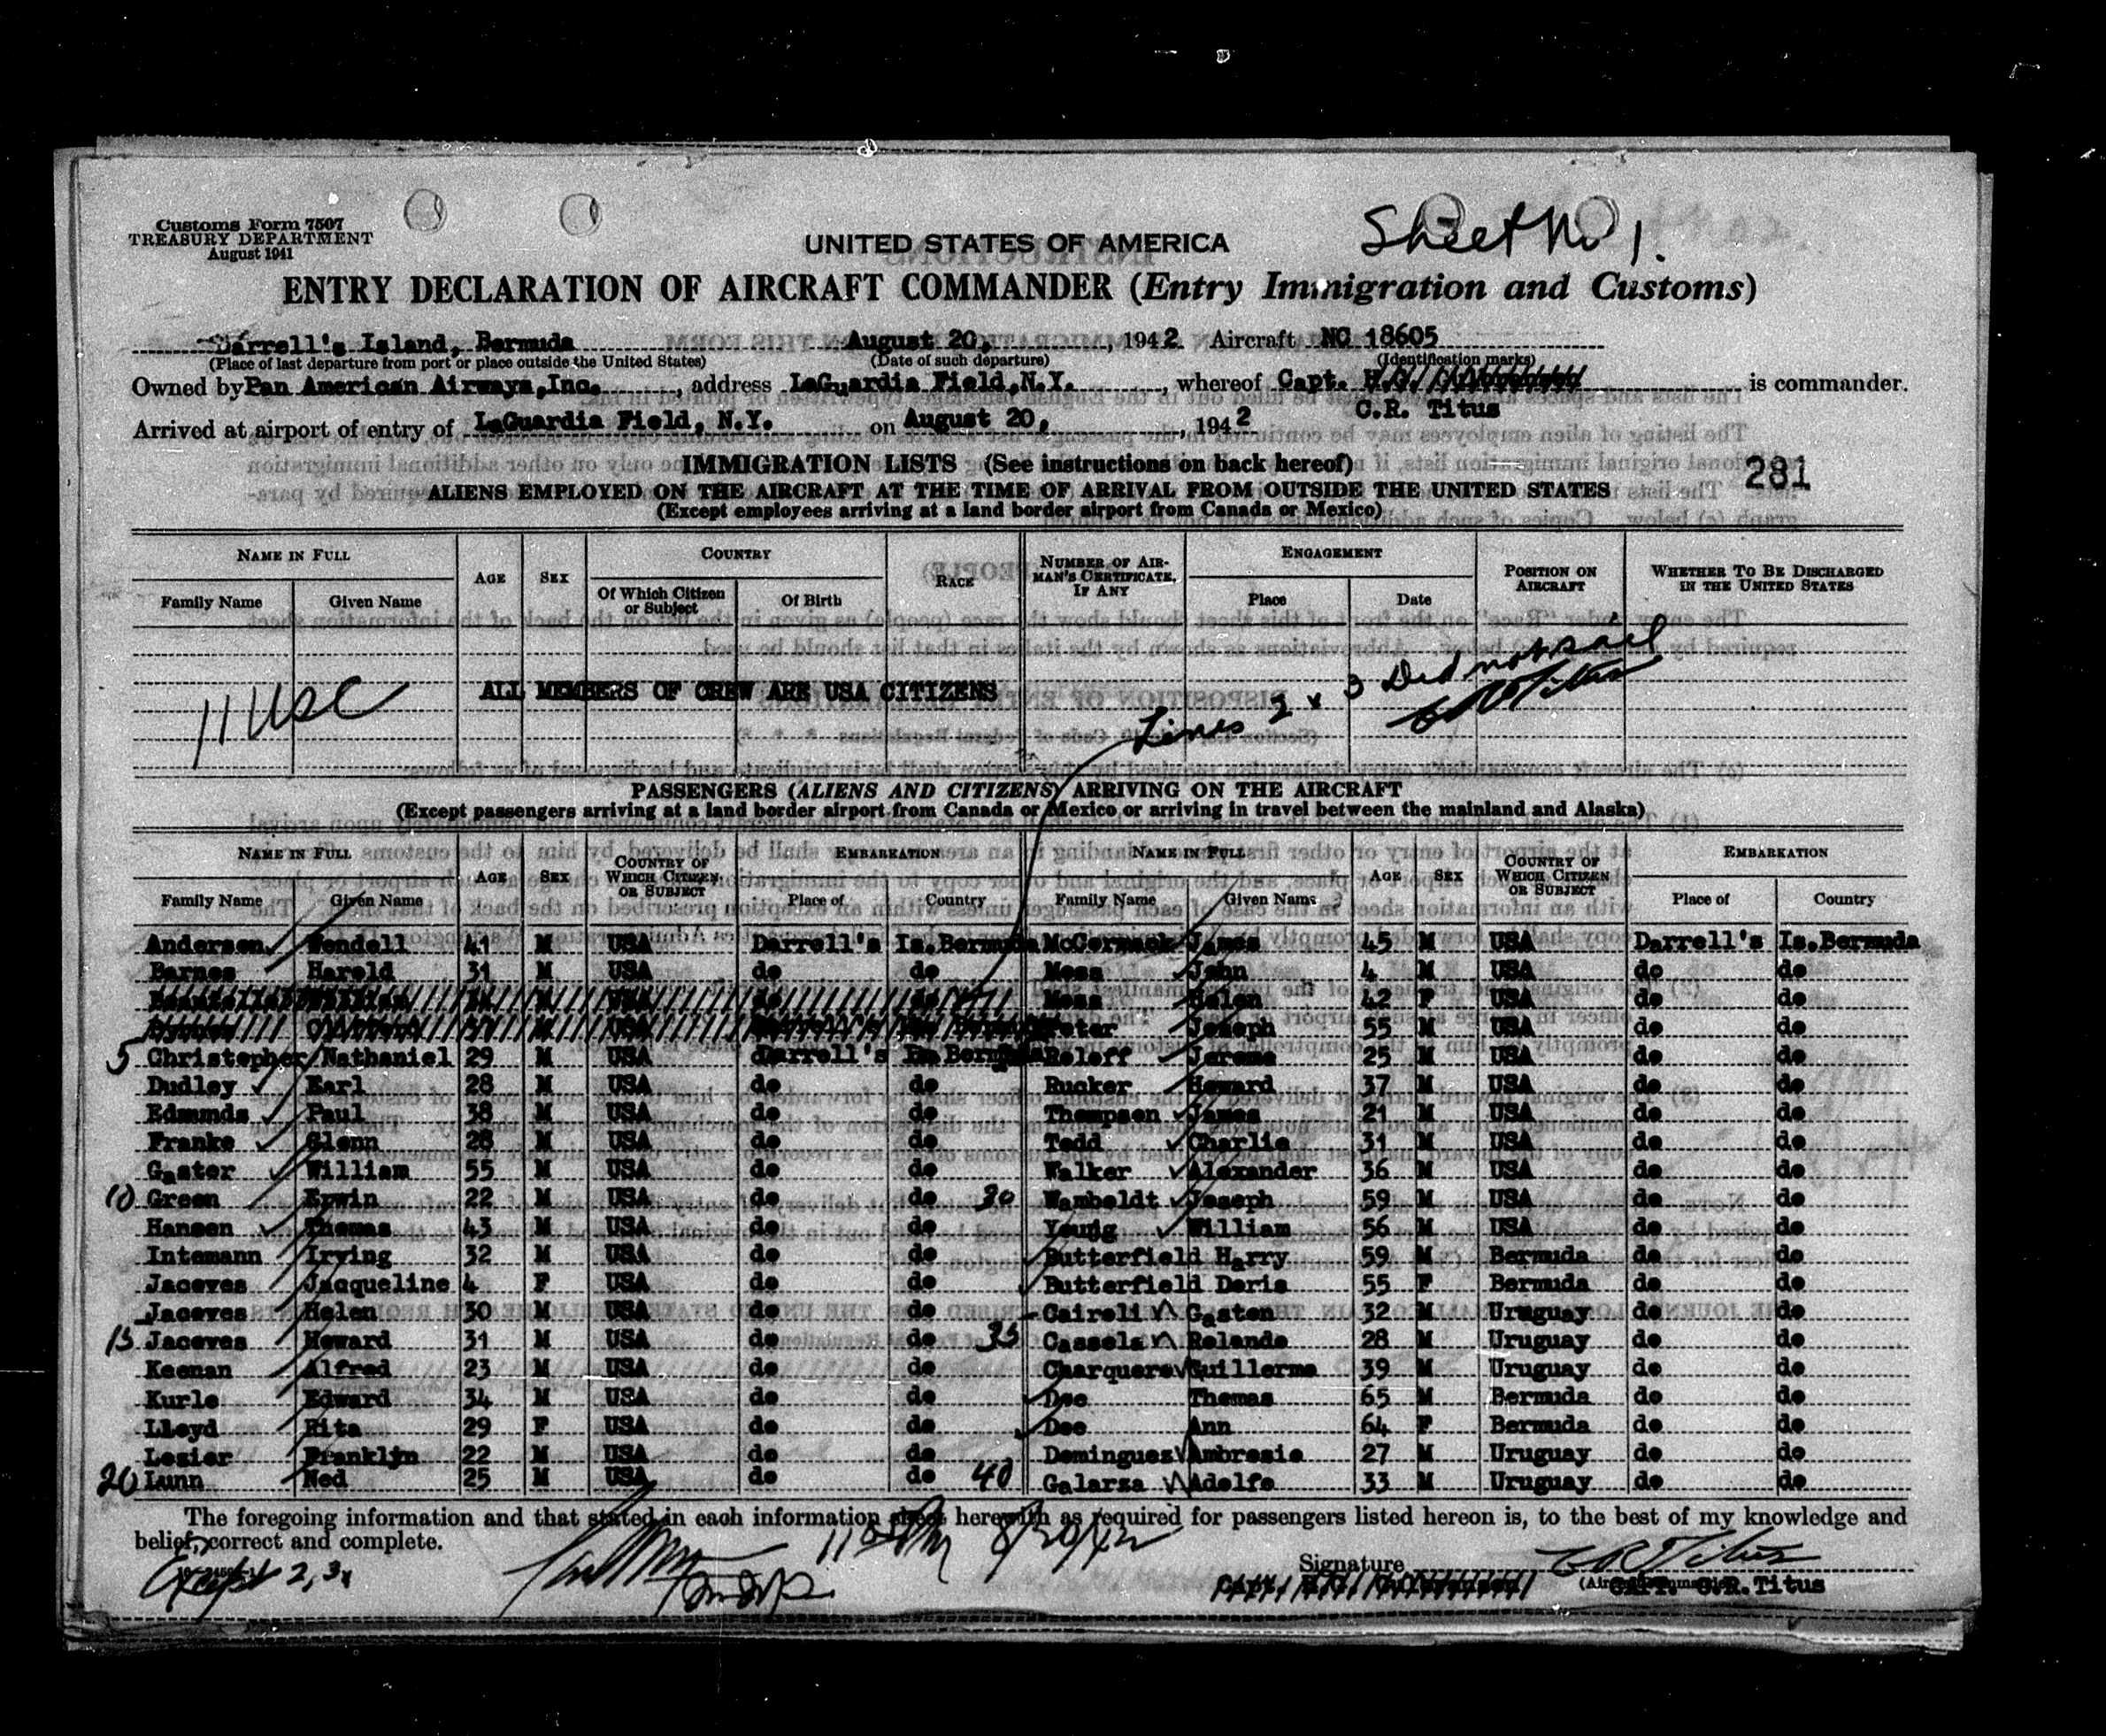 Customs Form 7507
TREASURY DEPARTMENT
August 1941
Sheet No 1.
UNITED STATES OF AMERICA
ENTRY DECLARATION OF AIRCRAFT COMMANDER (Entry Immigration and Customs)
Darrell's Island, Bermuda August 20, 1942 Aircraft NC 18605
(Place of last departure from port or place outside the United States) (Date of such departure) (Identification marks)
Owned by Pan American Airways, Inc. , address LaGuardia Field, N.Y. , whereof Capt. is commander.
C.R. Titus
Arrived at airport of entry of LaGuardia Field, N.Y. on August 20, , 1942
IMMIGRATION LISTS (See instructions on back hereof) 281
ALIENS EMPLOYED ON THE AIRCRAFT AT THE TIME OF ARRIVAL FROM OUTSIDE THE UNITED STATES
(Except employees arriving at a land border airport from Canada or Mexico)
NAME IN FULL AGE SEX COUNTRY RACE NUMBER OF AIRMAN'S CERTIFICATE, IF ANY ENGAGEMENT POSITION ON AIRCRAFT WHETHER TO BE DISCHARGED IN THE UNITED STATES
Family Name Given Name Of Which Citizen or Subject Of Birth Place Date
11 USC ALL MEMBERS OF CREW ARE USA CITIZENS
Lines 2 x 3 Did not sail
CR Titus
PASSENGERS (ALIENS AND CITIZENS) ARRIVING ON THE AIRCRAFT
(Except passengers arriving at a land border airport from Canada or Mexico or arriving in travel between the mainland and Alaska)
NAME IN FULL AGE SEX COUNTRY OF WHICH CITIZEN OR SUBJECT EMBARKATION NAME IN FULL AGE SEX COUNTRY OF WHICH CITIZEN OR SUBJECT EMBARKATION
Family Name Given Name Place of Country Family Name Given Name Place of Country
Andersen Wendell 41 M USA Darrell's Is. Bermuda McCormack James 45 M USA Darrell's Is. Bermuda
Barnes Harold 31 M USA do do Moss John 4 M USA do do
Moss Helen 42 F USA do do
Peter Joseph 55 M USA do do
5 Christopher Nathaniel 29 M USA Darrell's Is. Bermuda Roloff Jerome 25 M USA do do
Dudley Earl 28 M USA do do Rucker Howard 37 M USA do do
Edmunds Paul 38 M USA do do Thompson James 21 M USA do do
Franke Glenn 28 M USA do do Todd Charlie 31 M USA do do
Gaster William 55 M USA do do Walker Alexander 36 M USA do do
10 Green Erwin 22 M USA do do 30 Wamboldt Joseph 59 M USA do do
Hansen Thomas 43 M USA do do Young William 56 M USA do do
Intemann Irving 32 M USA do do Butterfield Harry 59 M Bermuda do do
Jacoves Jacqueline 4 F USA do do Butterfield Doris 55 F Bermuda do do
Jacoves Helen 30 M USA do do Cairoli Gaston 32 M Uruguay do do
15 Jacoves Howard 31 M USA do do 35 Cassola Rolando 28 M Uruguay do do
Keenan Alfred 23 M USA do do Charquero Guillermo 39 M Uruguay do do
Kurle Edward 34 M USA do do Doe Thomas 65 M Bermuda do do
Lloyd Rita 29 F USA do do Doe Ann 64 F Bermuda do do
Lozier Franklyn 22 M USA do do Dominguez Ambrosio 27 M Uruguay do do
20 Lunn Ned 25 M USA do do 40 Galarza Adolfo 33 M Uruguay do do
The foregoing information and that stated in each information sheet herewith as required for passengers listed hereon is, to the best of my knowledge and
belief, correct and complete.
Except 2, 3, 8/20/42 Signature CR Titus
Capt. C.R. Titus